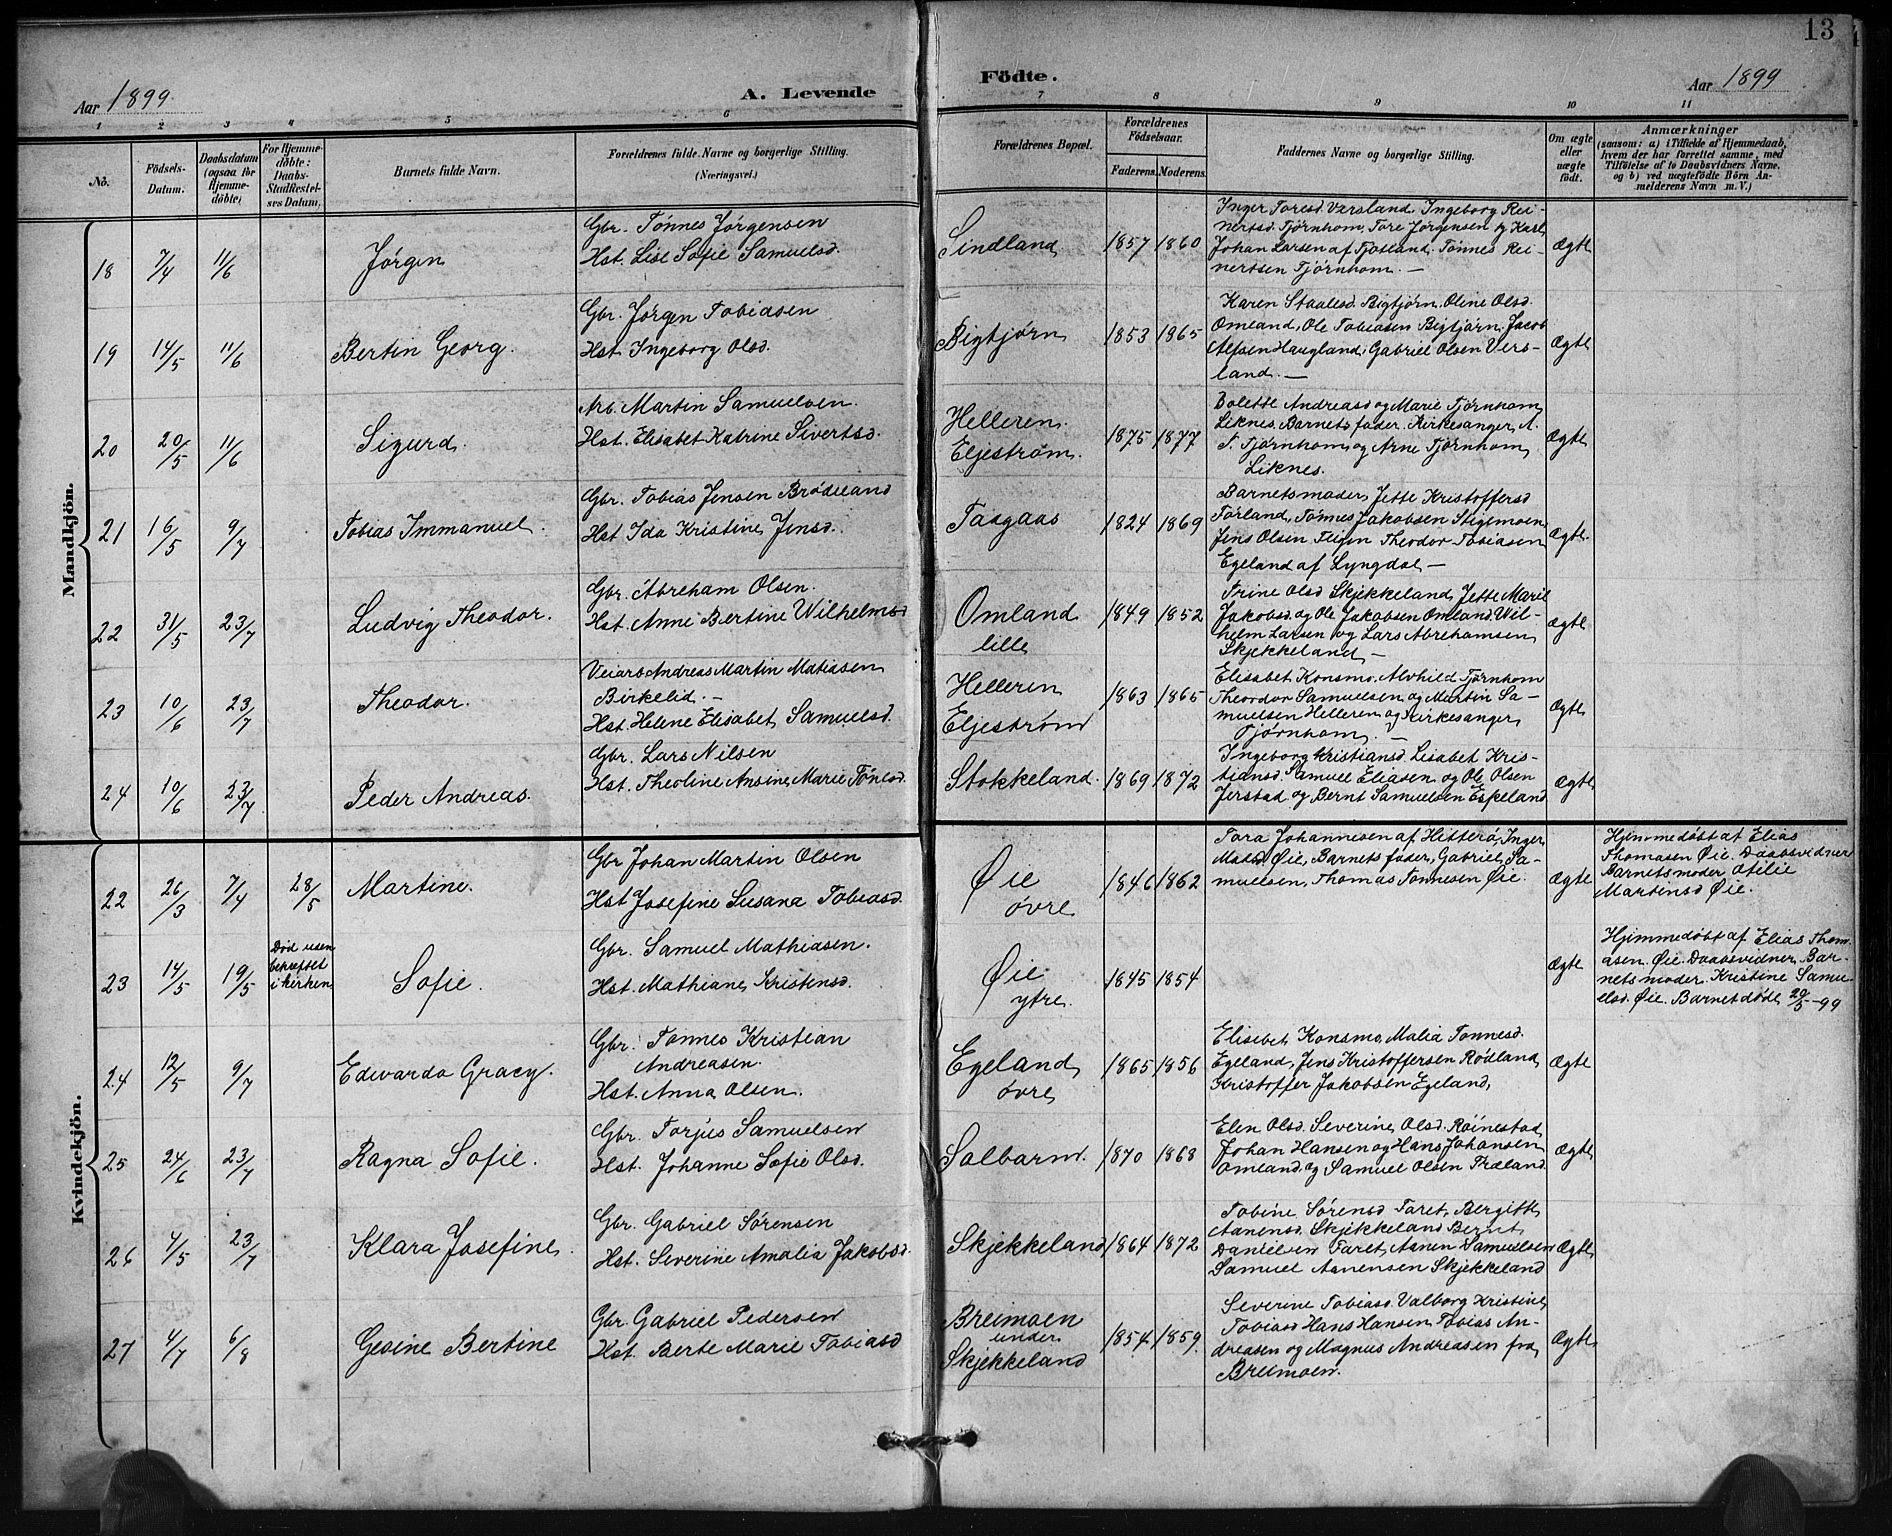 13
Aar 1899.
A. Levende
Födte.
Aar 1899
1 2 3 4 5 6 7 8 9 10 11
No.
Födsels-
Datum.
Daabsdatum
(ogsaa for
Hjemme-
döbte)
For Hjemme-
döbte:
Daabs-
Stadfæstel-
ses Datum.
Barnets fulde Navn.
Forældrenes fulde Navne og borgerlige Stilling.
(Næringsvei.)
Forældrenes Bopæl.
Forældrenes
Födselsaar.
Faderens. Moderens.
Faddernes Navne og borgerlige Stilling.
Om ægte
eller
uægte
födt.
Anmærkninger
(saasom: a) i Tilfælde af Hjemmedaab,
hvem der har forrettet samme, med
Tilföielse af to Daabsvidners Navne,
og b) ved uægtefödte Börn An-
melderens Navn m. V.)
Mandkjön.
18 7/4 11/6 Jørgen
Gbr. Tønnes Jørgensen
Hst. Lise Sofie Samuelsd.
Sindland 1857 1860
Inger Toresd Versland, Ingeborg Rei-
nertsd. Tjørnhom, Tore Jørgensen og Karl
Johan Larsen af Fjotland. Tønnes Rei-
nertsen Tjørnhom. —
Ægte
19 14/5 11/6 Bertin Georg.
Gbr. Jørgen Tobiasen
Hst. Ingeborg Olsd.
Bigtjørn 1853 1865
Karen Staalesd. Bigtjørn. Oline Olsd.
Omland, Ole Tobiasen Bigtjørn, Jacob
Alfsen Haugland, Gabriel Olsen Vers-
land. —
Ægte
20 20/5 11/6 Sigurd.
Arb. Martin Samuelsen.
Hst. Elisabet Katrine Sivertsd.
Helleren
Eljestrøm. 1875 1877
Bolette Andreasd og Marie Tjørnhom,
Liknes, Barnets fader, Kirkesanger, A.
T. Tjørnhom, og Arne Tjørnhom,
Liknes.
Ægte
21 16/5 9/7 Tobias Immanuel.
Gbr. Tobias Jensen Brødeland
Hst Ida Kristine Jensd.
Faagaas 1824 1869
Barnets moder, Jette Kristoffersd
Førland, Tønnes Jakobsen Stigemoen,
Jens Olsen Theodor Tobiasen
Egeland af Lyngdal —
Ægte.
22 31/5 23/7 Ludvig Theodor.
Gbr. Abreham Olsen.
Hst. Anne Bertine Wilhelmsd
Omland
lille 1849 1852
Trine Olsd Skjekkeland, Jette Marie
Jakobsd. og Ole Jakobsen Omland. Wil-
helm Larsen og Lars Abrehamsen
Skjekkeland —
Ægte
23 10/6 23/7 Theodor.
Veiarb Andreas Martin Matiasen
Birkelid. —
Hst. Helene Elisabet Samuelsd.
Helleren
Eljestrøm 1863 1865
Elisabet Konsmo, Alvhild Tjørnhom
Theordor Samuelsen og Martin Sa-
muelsen Helleren og Kirkesanger,
Tjørnhom. —
Ægte
24 10/6 23/7 Peder Andreas.
Gbr. Lars Nilsen
Hst. Theoline Ansine Marie Tønesd.
Stokkeland. 1869 1872
Ingeborg Kristiansd. Lisabet Kris-
tiansd. Samuel Eliasen og Ole Olsen
Jerstad og Bernt Samuelsen Eskeland
Ægte
Kvindekjön.
22 26/3 7/4 28/5 Martine.
Gbr Johan Martin Olsen
Hst Josefine Susana Tobiasd.
Øie
øvre 1846 1862
Tora Johannesen af Hitterø, Inger
Madsd. Øie, Barnets fader, Gabriel Sa-
muelsen, Thomas Tønnesen Øie.
Ægte
Hjemmedøbt af Elias
Thomasen Øie. Daabsvidner
Barnets moder Otilie
Martinsd Øie.
23 14/5 19/5
Død uden
bekræftet
i kirken
Sofie.
Gbr. Samuel Mathiasen.
Hst. Mathiane Kristensd.
Øie
ytre. 1845 1854
Ægte
Hjemmedøbt af Elias Thom-
asen Øie. Daabsvidner, Bar-
nets moder. Kristine Samu-
elsd. Øie. Barnet døde 20/5-99
24 12/5 9/7 Edvarda Gracy.
Gbr. Tønnes Kristian
Andreasen.
Hst. Anna Olsen.
Egeland
øvre 1865 1856
Elisebet Konsmo, Malia Tønnesd.
Egeland, Jens Kristoffersen Rødland,
Kristoffer Jakobsen Egeland,
Ægte
25 24/6 23/7 Ragna Sofie.
Gbr. Torjus Samuelsen
Hst. Johanne Sofie Olsd.
Salbarm. 1870 1868
Elen Olsd. Severine Olsd. Røinestad,
Johan Hansen og Hans Johansen
Omland og Samuel Olsen Træland
Ægte
26 4/5 23/7 Klara Josefine.
Gbr. Gabriel Sørensen
Hst. Severine Amalia Jakobsd.
Skjekkeland 1864 1872
Tobine Sørensd Faret, Bergitte
Aanensd. Skjekkeland Bernt
Danielsen Faret, Aanen Samuelsen
Samuel Aanensen Skjekkeland
Ægte
27 4/7 6/8 Gesine Bertine
Gbr. Gabriel Pedersen
Hst. Berte Marie Tobiasd
Breimoen
under
Skjekkeland 1854 1859.
Severine Tobiasd. Valborg Kristine
Tobiasd Hans Hansen, Tobias An-
dreasen og Magnus Andreasen fra
Breimoen.
Ægte